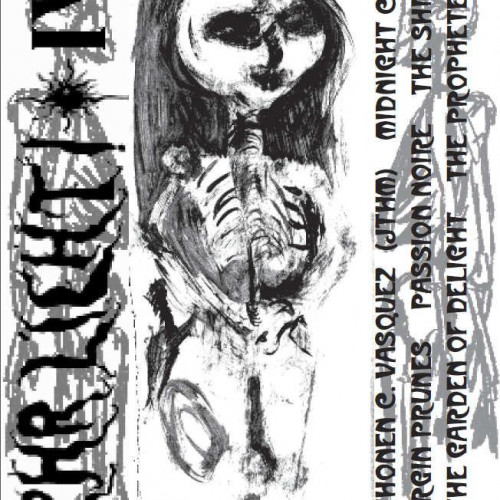 HR LICHT! IV
HONEN C. VASQUEZ (JTHM) MIDNIGHT C
RGIN PRUNES PASSION NOIRE THE SHI
HE GARDEN OF DELIGHT THE PROPHETE